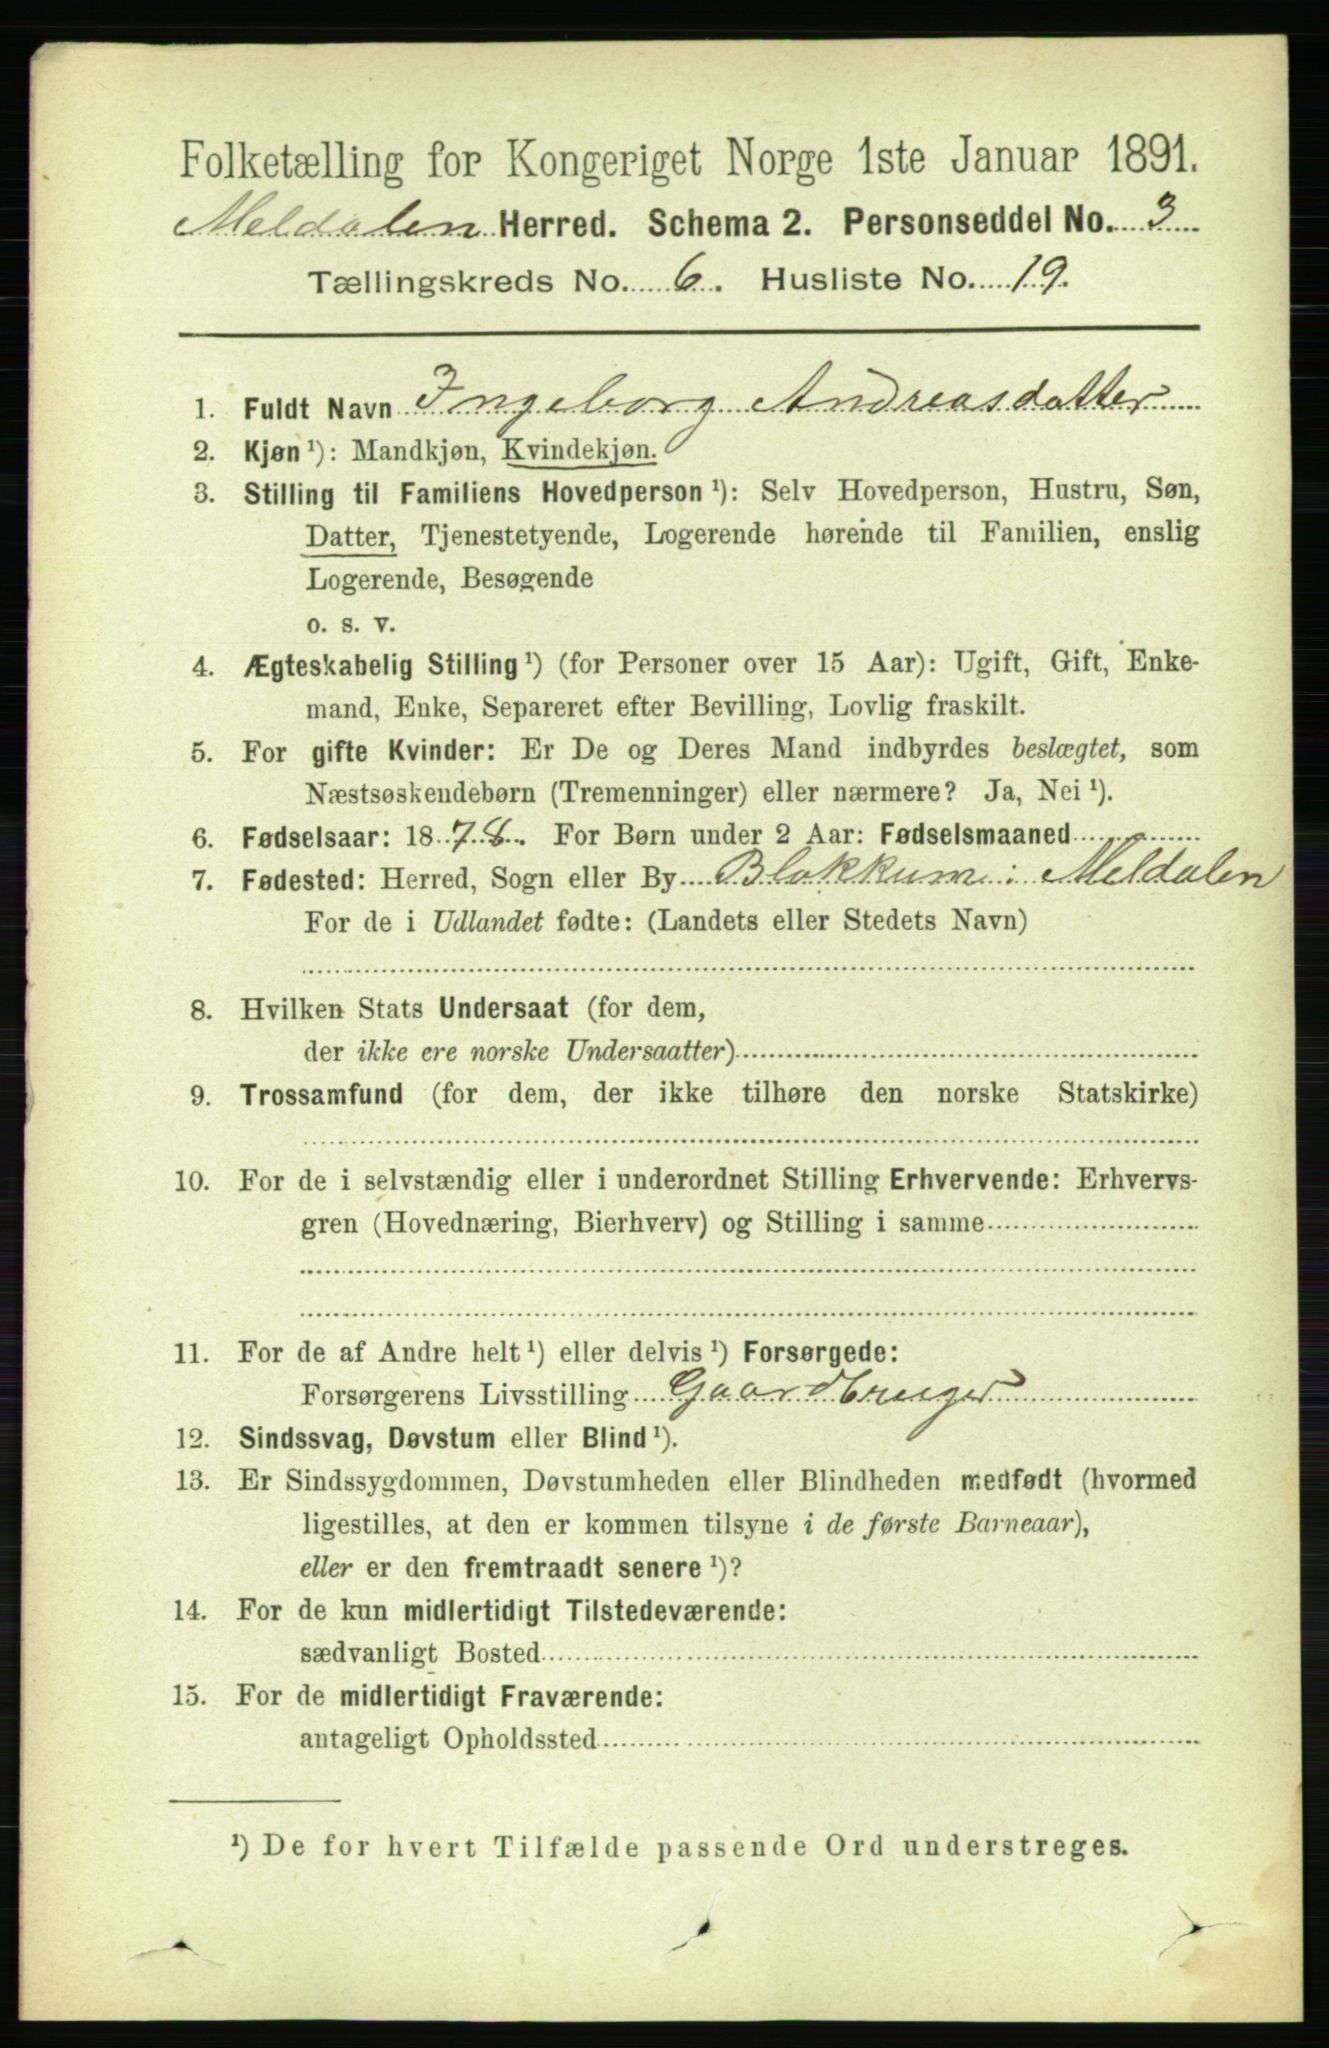 Folketælling for Kongeriget Norge 1ste Januar 1891.
Meldalen Herred. Schema 2. Personseddel No. 3
Tællingskreds No. 6. Husliste No. 19.
1. Fuldt Navn Ingeborg Andreasdatter
2. Kjøn ¹): Mandkjøn, Kvindekjøn.
3. Stilling til Familiens Hovedperson ¹): Selv Hovedperson, Hustru, Søn,
Datter, Tjenestetyende, Logerende hørende til Familien, enslig
Logerende, Besøgende
o. s. v.
4. Ægteskabelig Stilling ¹) (for Personer over 15 Aar): Ugift, Gift, Enke-
mand, Enke, Separeret efter Bevilling, Lovlig fraskilt.
5. For gifte Kvinder: Er De og Deres Mand indbyrdes beslægtet, som
Næstsøskendebørn (Tremenninger) eller nærmere? Ja, Nei ¹).
6. Fødselsaar: 1878. For Børn under 2 Aar: Fødselsmaaned
7. Fødested: Herred, Sogn eller By Blokkum i Meldalen
For de i Udlandet fødte: (Landets eller Stedets Navn)
8. Hvilken Stats Undersaat (for dem,
der ikke ere norske Undersaatter)
9. Trossamfund (for dem, der ikke tilhøre den norske Statskirke)
10. For de i selvstændig eller i underordnet Stilling Erhvervende: Erhvervs-
gren (Hovednæring, Bierhverv) og Stilling i samme
11. For de af Andre helt ¹) eller delvis ¹) Forsørgede:
Forsørgerens Livsstilling Gaardbruger
12. Sindssvag, Døvstum eller Blind ¹).
13. Er Sindssygdommen, Døvstumheden eller Blindheden medfødt (hvormed
ligestilles, at den er kommen tilsyne i de første Barneaar),
eller er den fremtraadt senere ¹)?
14. For de kun midlertidigt Tilstedeværende:
sædvanligt Bosted
15. For de midlertidigt Fraværende:
antageligt Opholdssted
¹) De for hvert Tilfælde passende Ord understreges.